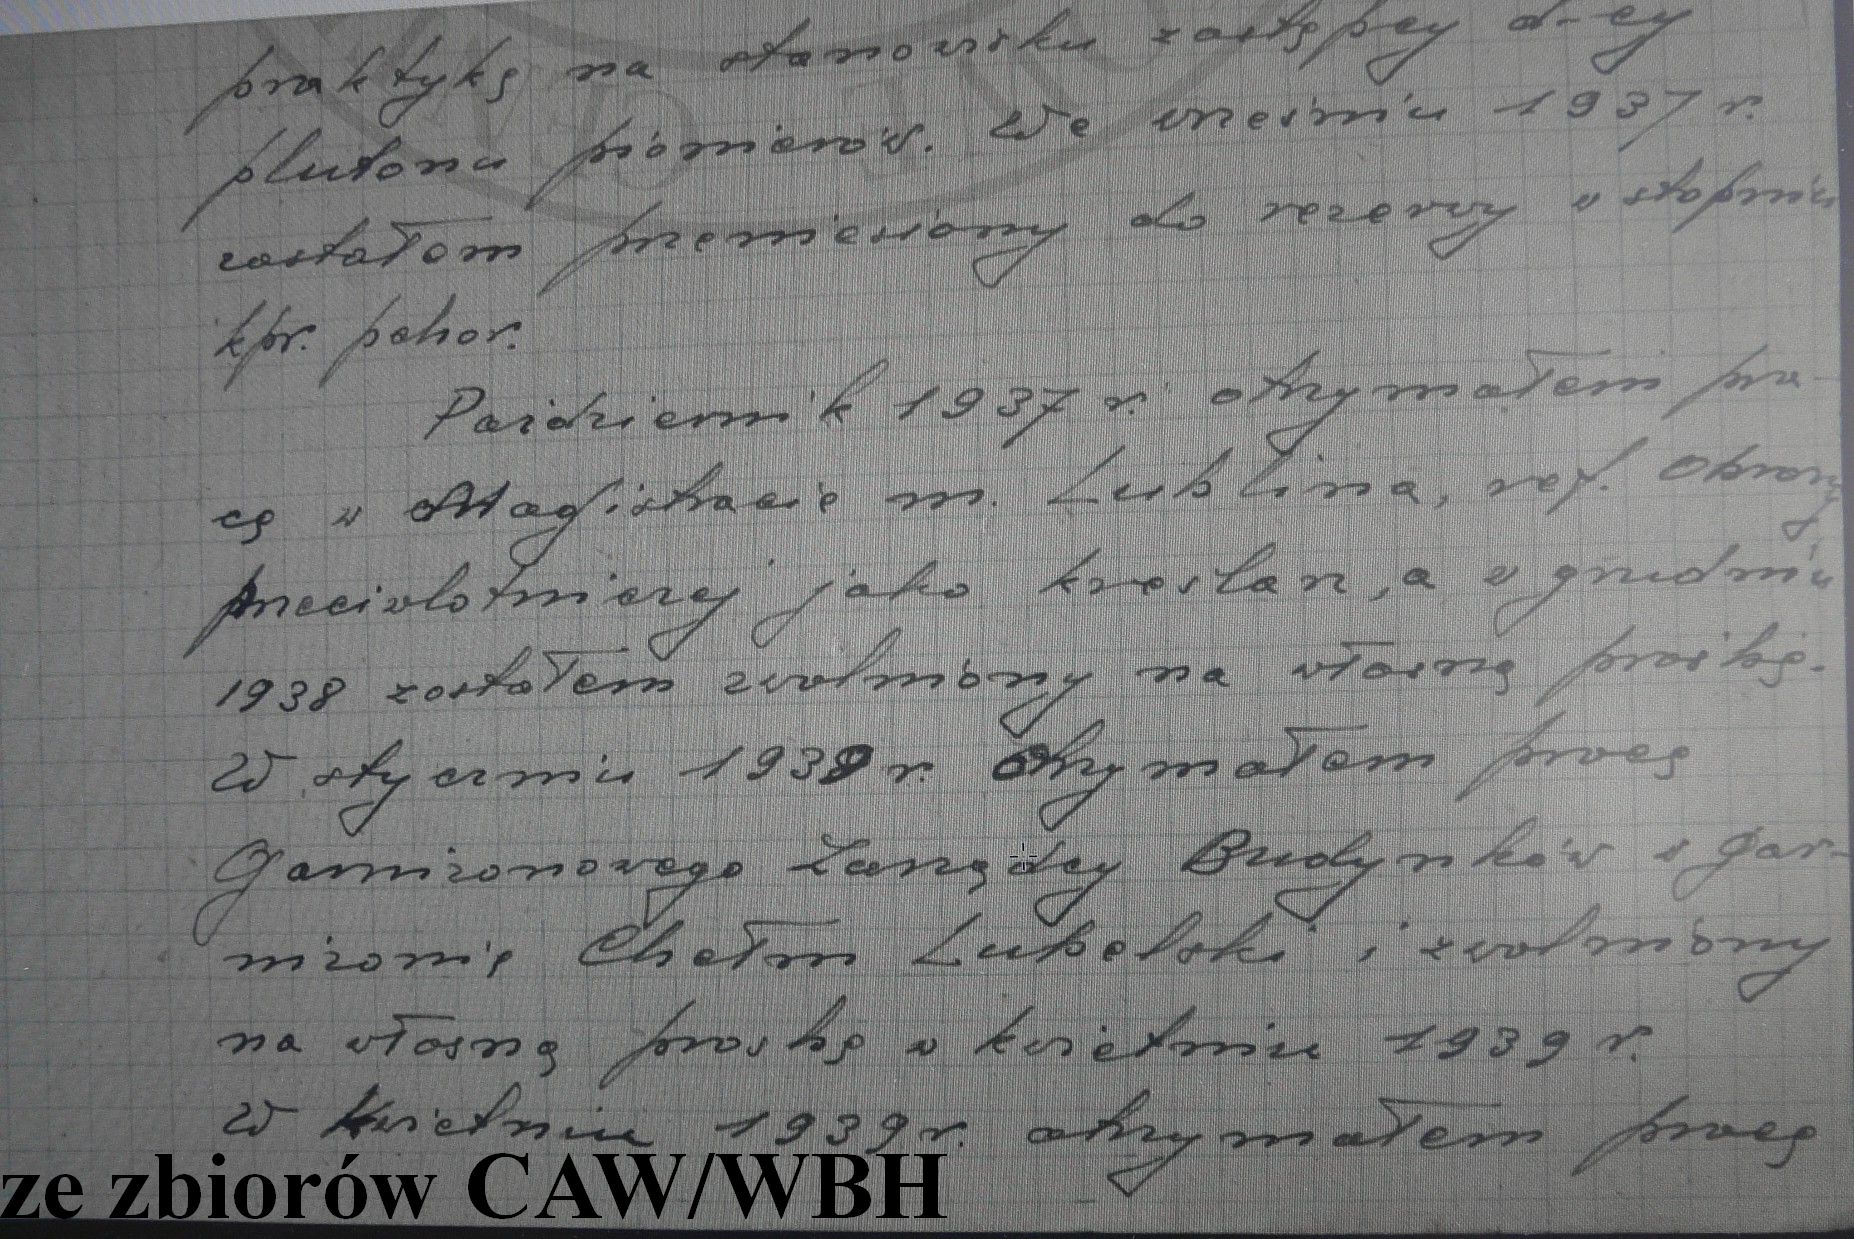 praktykę na stanowisku zastępcy d-cy
plutonu pionierów. We wrześniu 1937 r.
zostałem przeniesiony do rezerwy w stopniu
kpr. pchor.
Październik 1937 r. otrzymałem pra-
cę w Magistracie m. Lublina, ref. Obrony
przeciwlotniczej jako kreślarz, a w grudniu
1938 zostałem zwolniony na własną prośbę.
W styczniu 1939 r. otrzymałem pracę
Garnizonowego Zarządcy Budynków w gar-
nizonie Chełm Lubelski i zwolniony
na własną prośbę w kwietniu 1939 r.
W kwietniu 1939 r. otrzymałem pracę
ze zbiorów CAW/WBH